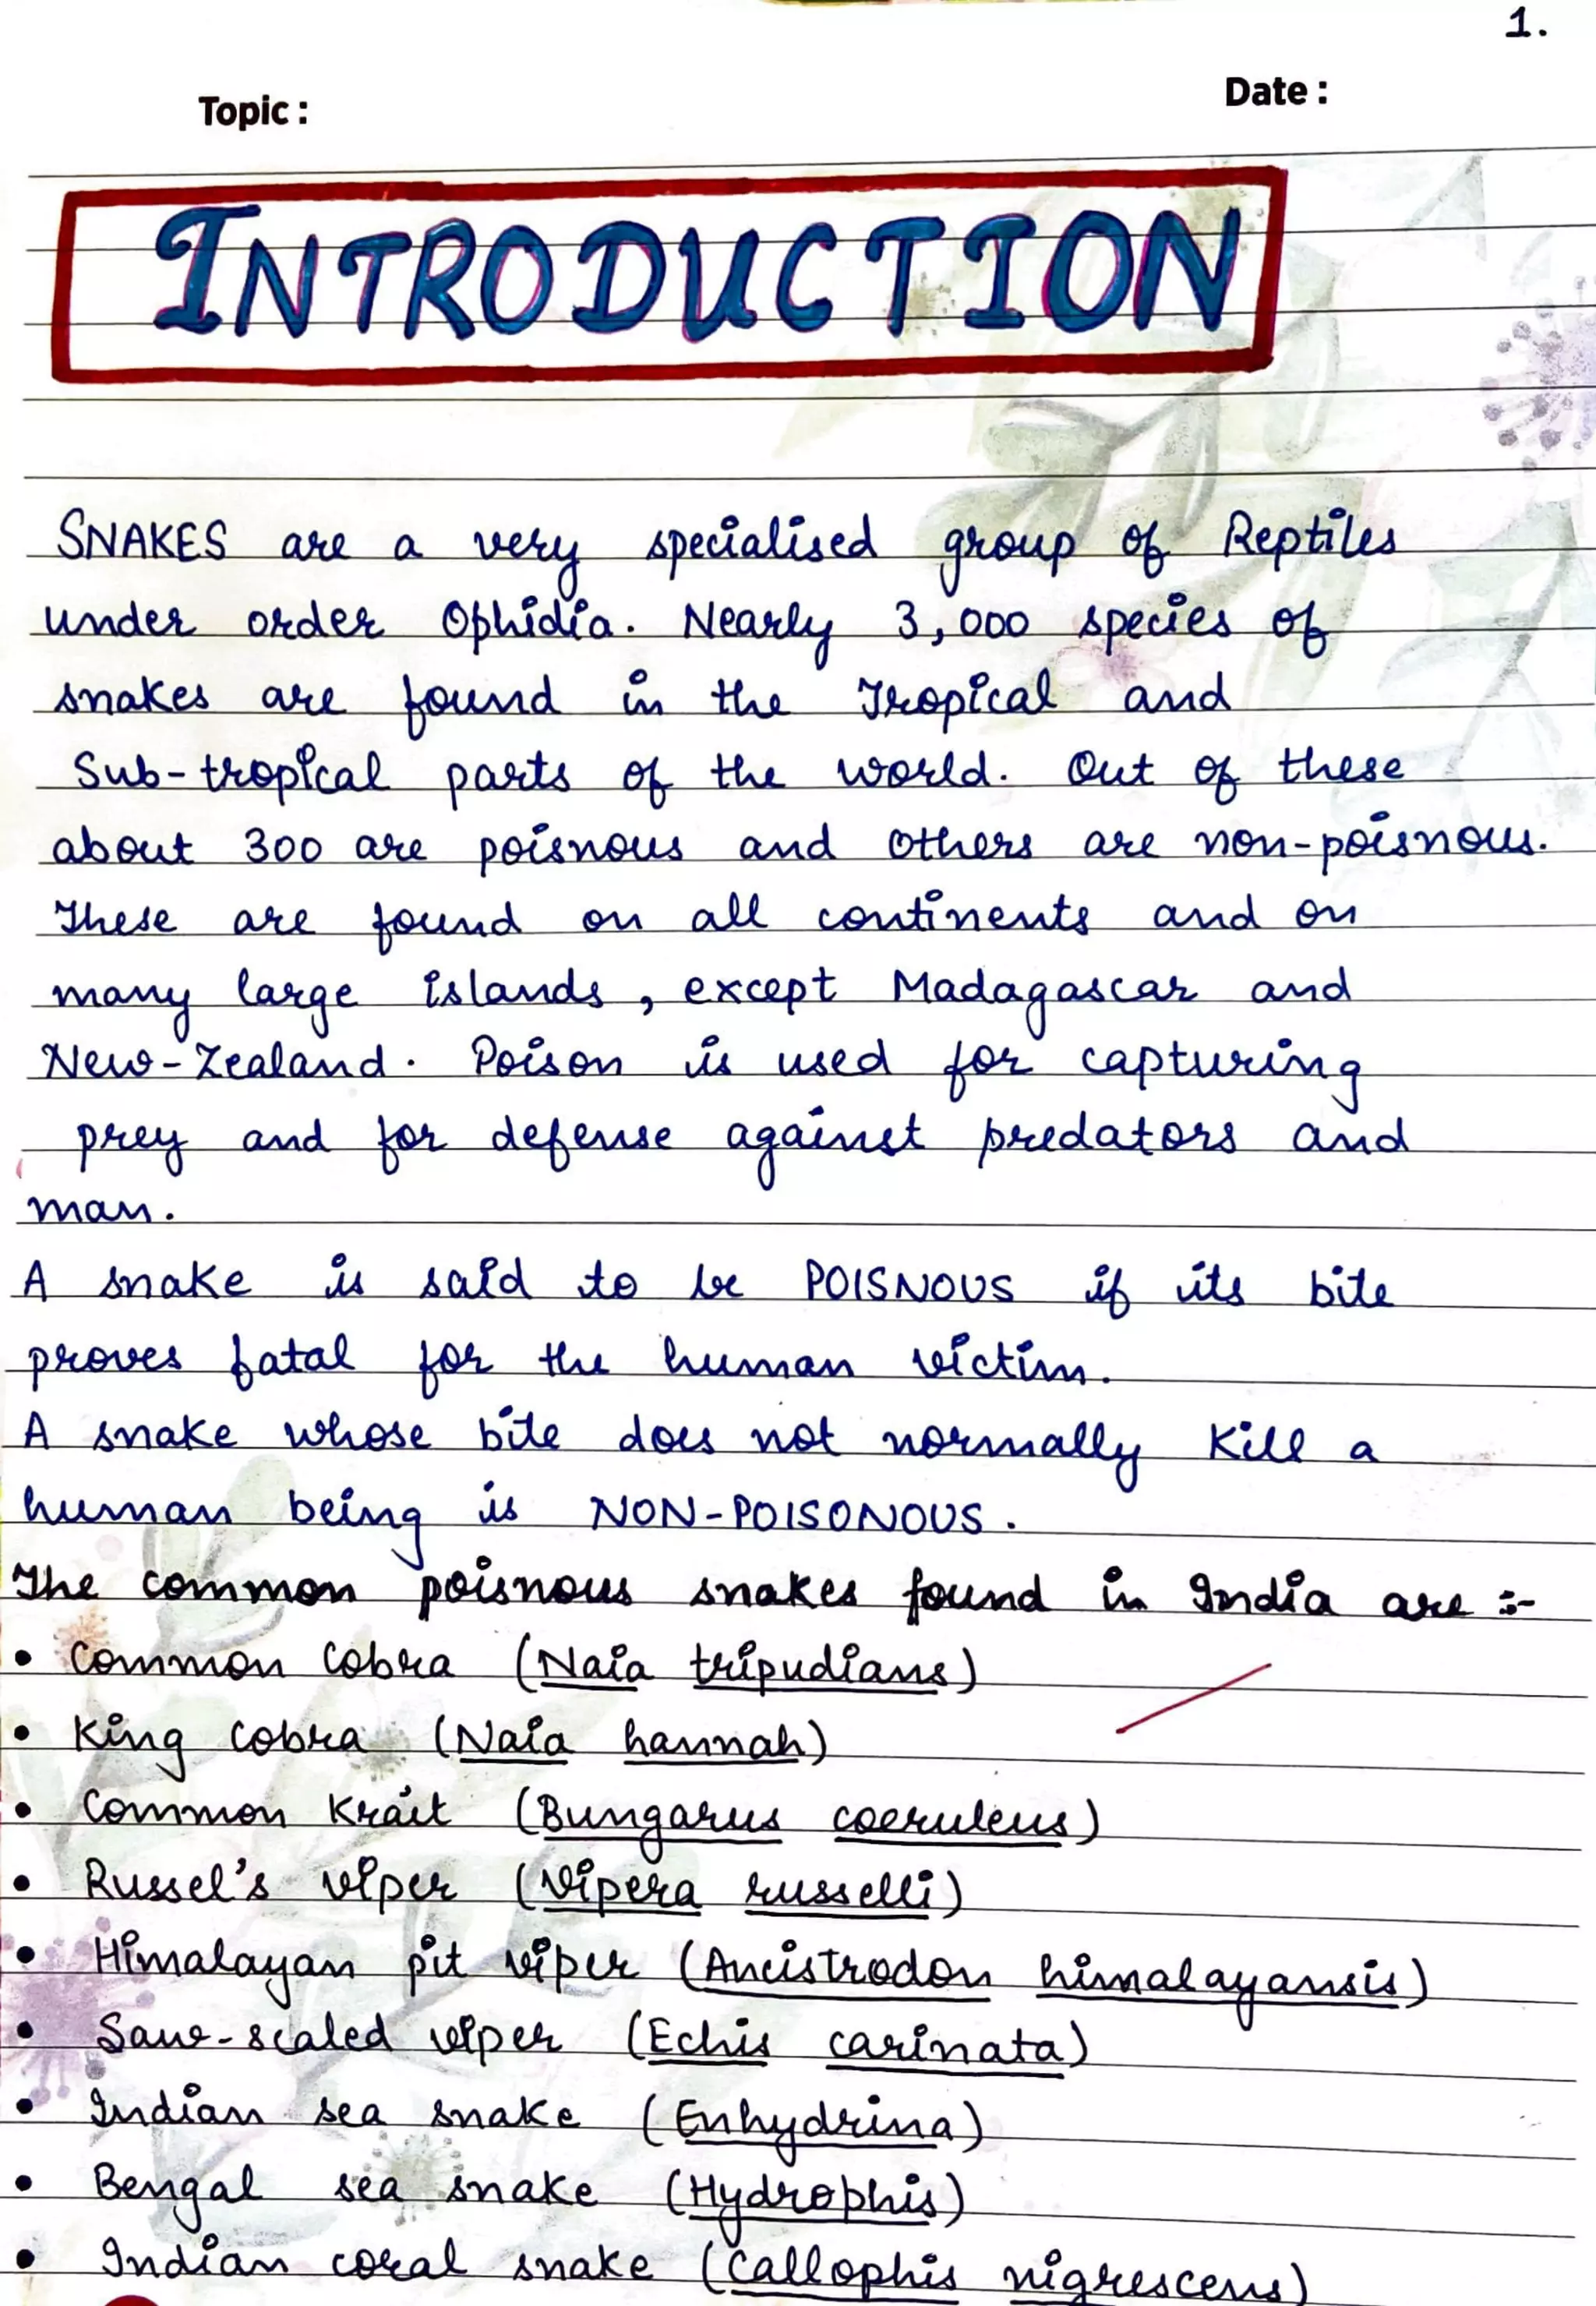 1.
Topic :
Date :
INTRODUCTION
SNAKES are a very specialised group of Reptiles
under order Ophidia. Nearly 3,000 species of
snakes are found in the Tropical and
Sub-tropical parts of the world. Out of these
about 300 are poisnous and others are non-poisnous.
These are found on all continents and on
many large islands, except Madagascar and
New-Zealand. Poison is used for capturing
prey and for defense against predators and
man.
A snake is said to be POISNOUS if its bite
proves fatal for the human victim.
A snake whose bite does not normally kill a
human being is NON-POISONOUS.
The common poisnous snakes found in India are :-
• Common Cobra (Naia tripudians)
• King Cobra (Naia hannah)
• Common Krait (Bungarus coeruleus)
• Russel's viper (Vipera russelli)
• Himalayan pit viper (Ancistrodon himalayansis)
• Saw-scaled viper (Echis carinata)
• Indian sea snake (Enhydrina)
• Bengal sea snake (Hydrophis)
• Indian coral snake (Callophis nigrescens)